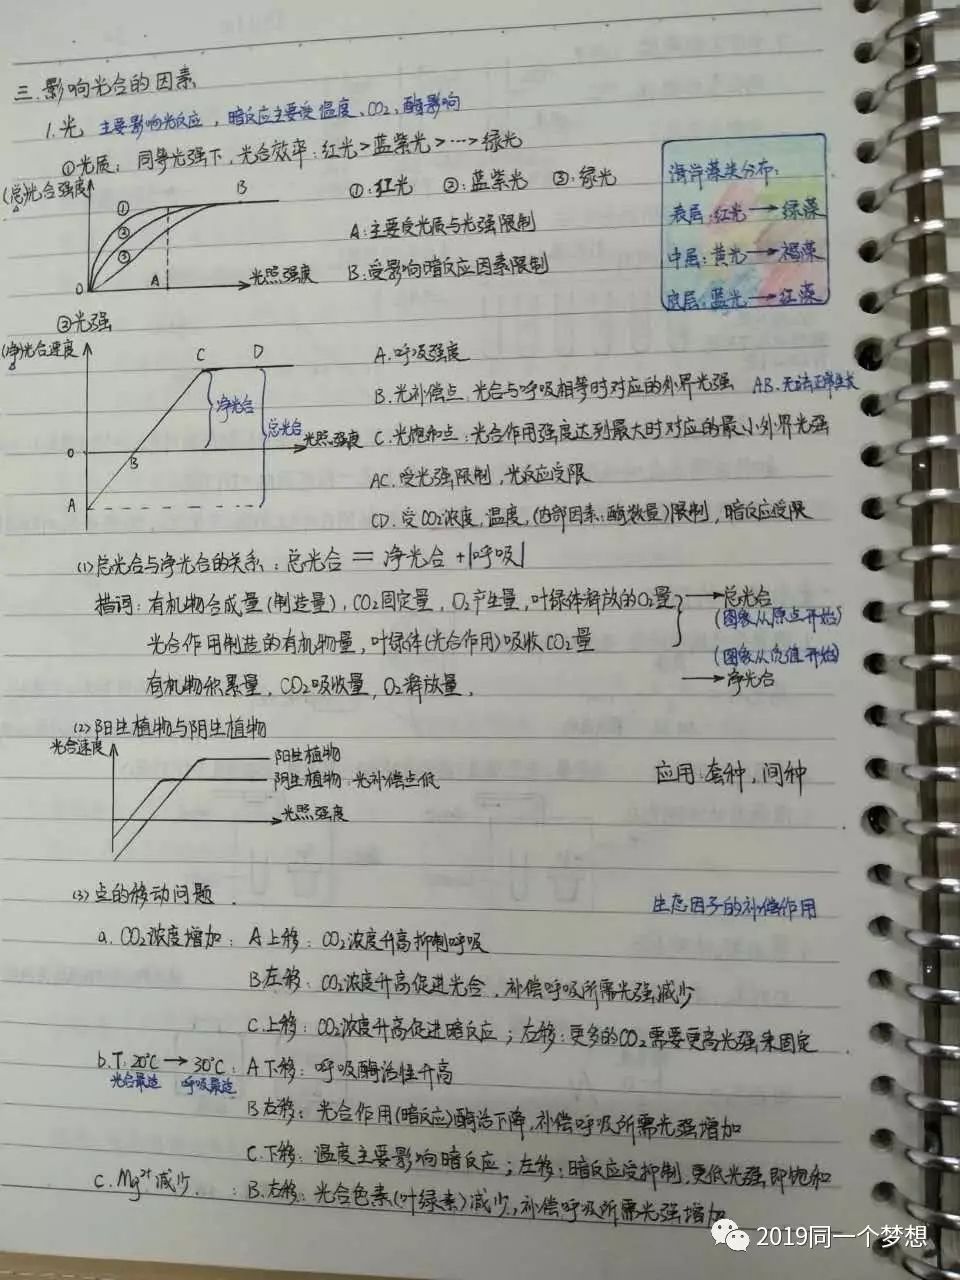 三.影响光合的因素
1.光 主要影响光反应，暗反应主要受温度、CO₂、酶影响
①光质：同等光强下，光合效率：红光>蓝紫光>…>绿光
(总)光合强度
① ② ③ B
0 A 光照强度
①:红光 ②:蓝紫光 ③:绿光
A:主要受光质与光强限制
B:受影响暗反应因素限制
海岸藻类分布：
表层：红光→绿藻
中层：黄光→褐藻
底层：蓝光→红藻
②光强
(净)光合速度
C D
净光合 总光合
0 B 光照强度
A
A.呼吸强度
B.光补偿点.光合与呼吸相等时对应的外界光强 AB.无法正常生长
C.光饱和点：光合作用强度达到最大时对应的最小外界光强
AC.受光强限制，光反应受限
CD.受CO₂浓度，温度，(内部因素：酶数量)限制，暗反应受限
(1)总光合与净光合的关系：总光合 = 净光合 +|呼吸|
措词：有机物合成量(制造量)，CO₂固定量，O₂产生量，叶绿体释放的O₂量 →总光合
(图象从原点开始)
光合作用制造的有机物量，叶绿体(光合作用)吸收CO₂量
(图象从负值开始)
有机物积累量，CO₂吸收量，O₂释放量， →净光合
(2)阳生植物与阴生植物
光合速度
阳生植物
阴生植物：光补偿点低
光照强度
应用：套种，间种
(3)点的移动问题.
生态因子的补偿作用
a.CO₂浓度增加：A上移：CO₂浓度升高抑制呼吸
B左移：CO₂浓度升高促进光合，补偿呼吸所需光强减少
C.上移：CO₂浓度升高促进暗反应；右移：更多的CO₂需要更高光强来固定
b.T:20℃→30℃：A下移：呼吸酶活性升高
光合最适 呼吸最适
B右移：光合作用(暗反应)酶活下降,补偿呼吸所需光强增加
C.下移：温度主要影响暗反应；左移：暗反应受抑制,更低光强即饱和
c.Mg²⁺减少.：B.右移：光合色素(叶绿素)减少,补偿呼吸所需光强增加
2019同一个梦想